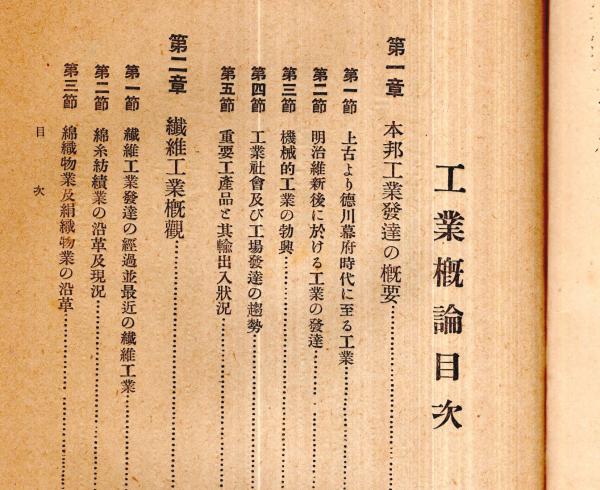 工業概論目次
第一章 本邦工業發達の概要
第一節 上古より德川幕府時代に至る工業
第二節 明治維新後に於ける工業の發達
第三節 機械的工業の勃興
第四節 工業社會及び工場發達の趨勢
第五節 重要工產品と其輸出入狀況
第二章 纖維工業概觀
第一節 纖維工業發達の經過並最近の纖維工業
第二節 綿糸紡績業の沿革及現況
第三節 綿織物業及絹織物業の沿革
目次